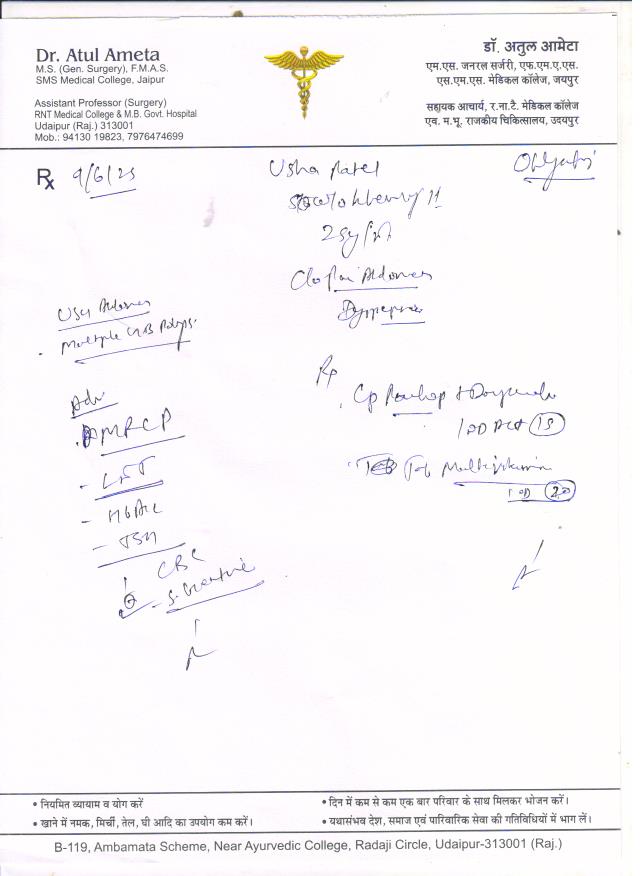 Dr. Atul Ameta
M.S. (Gen. Surgery), F.M.A.S.
SMS Medical College, Jaipur
Assistant Professor (Surgery)
RNT Medical College & M.B. Govt. Hospital
Udaipur (Raj.) 313001
Mob.: 94130 19823, 7976474699
डॉ. अतुल आमेटा
एम.एस. जनरल सर्जरी, एफ.एम.ए.एस.
एस.एम.एस. मेडिकल कॉलेज, जयपुर
सहायक आचार्य, र.ना.टै. मेडिकल कॉलेज
एव. म.भू. राजकीय चिकित्सालय, उदयपुर
Rx 9/6/25
Usha Patel
25y/
C/o Pain Abdomen
Dyspepsia
USG Abdomen
Multiple GB Polyps.
Adv
MRCP
- LFT
- HbA1c
- TSH
CBC
- S. Creatinine
Rp
Cp
1 OD 15
Tab
1 OD 20
• नियमित व्यायाम व योग करें
• खाने में नमक, मिर्ची, तेल, घी आदि का उपयोग कम करें।
• दिन में कम से कम एक बार परिवार के साथ मिलकर भोजन करें।
• यथासंभव देश, समाज एवं पारिवारिक सेवा की गतिविधियों में भाग लें।
B-119, Ambamata Scheme, Near Ayurvedic College, Radaji Circle, Udaipur-313001 (Raj.)